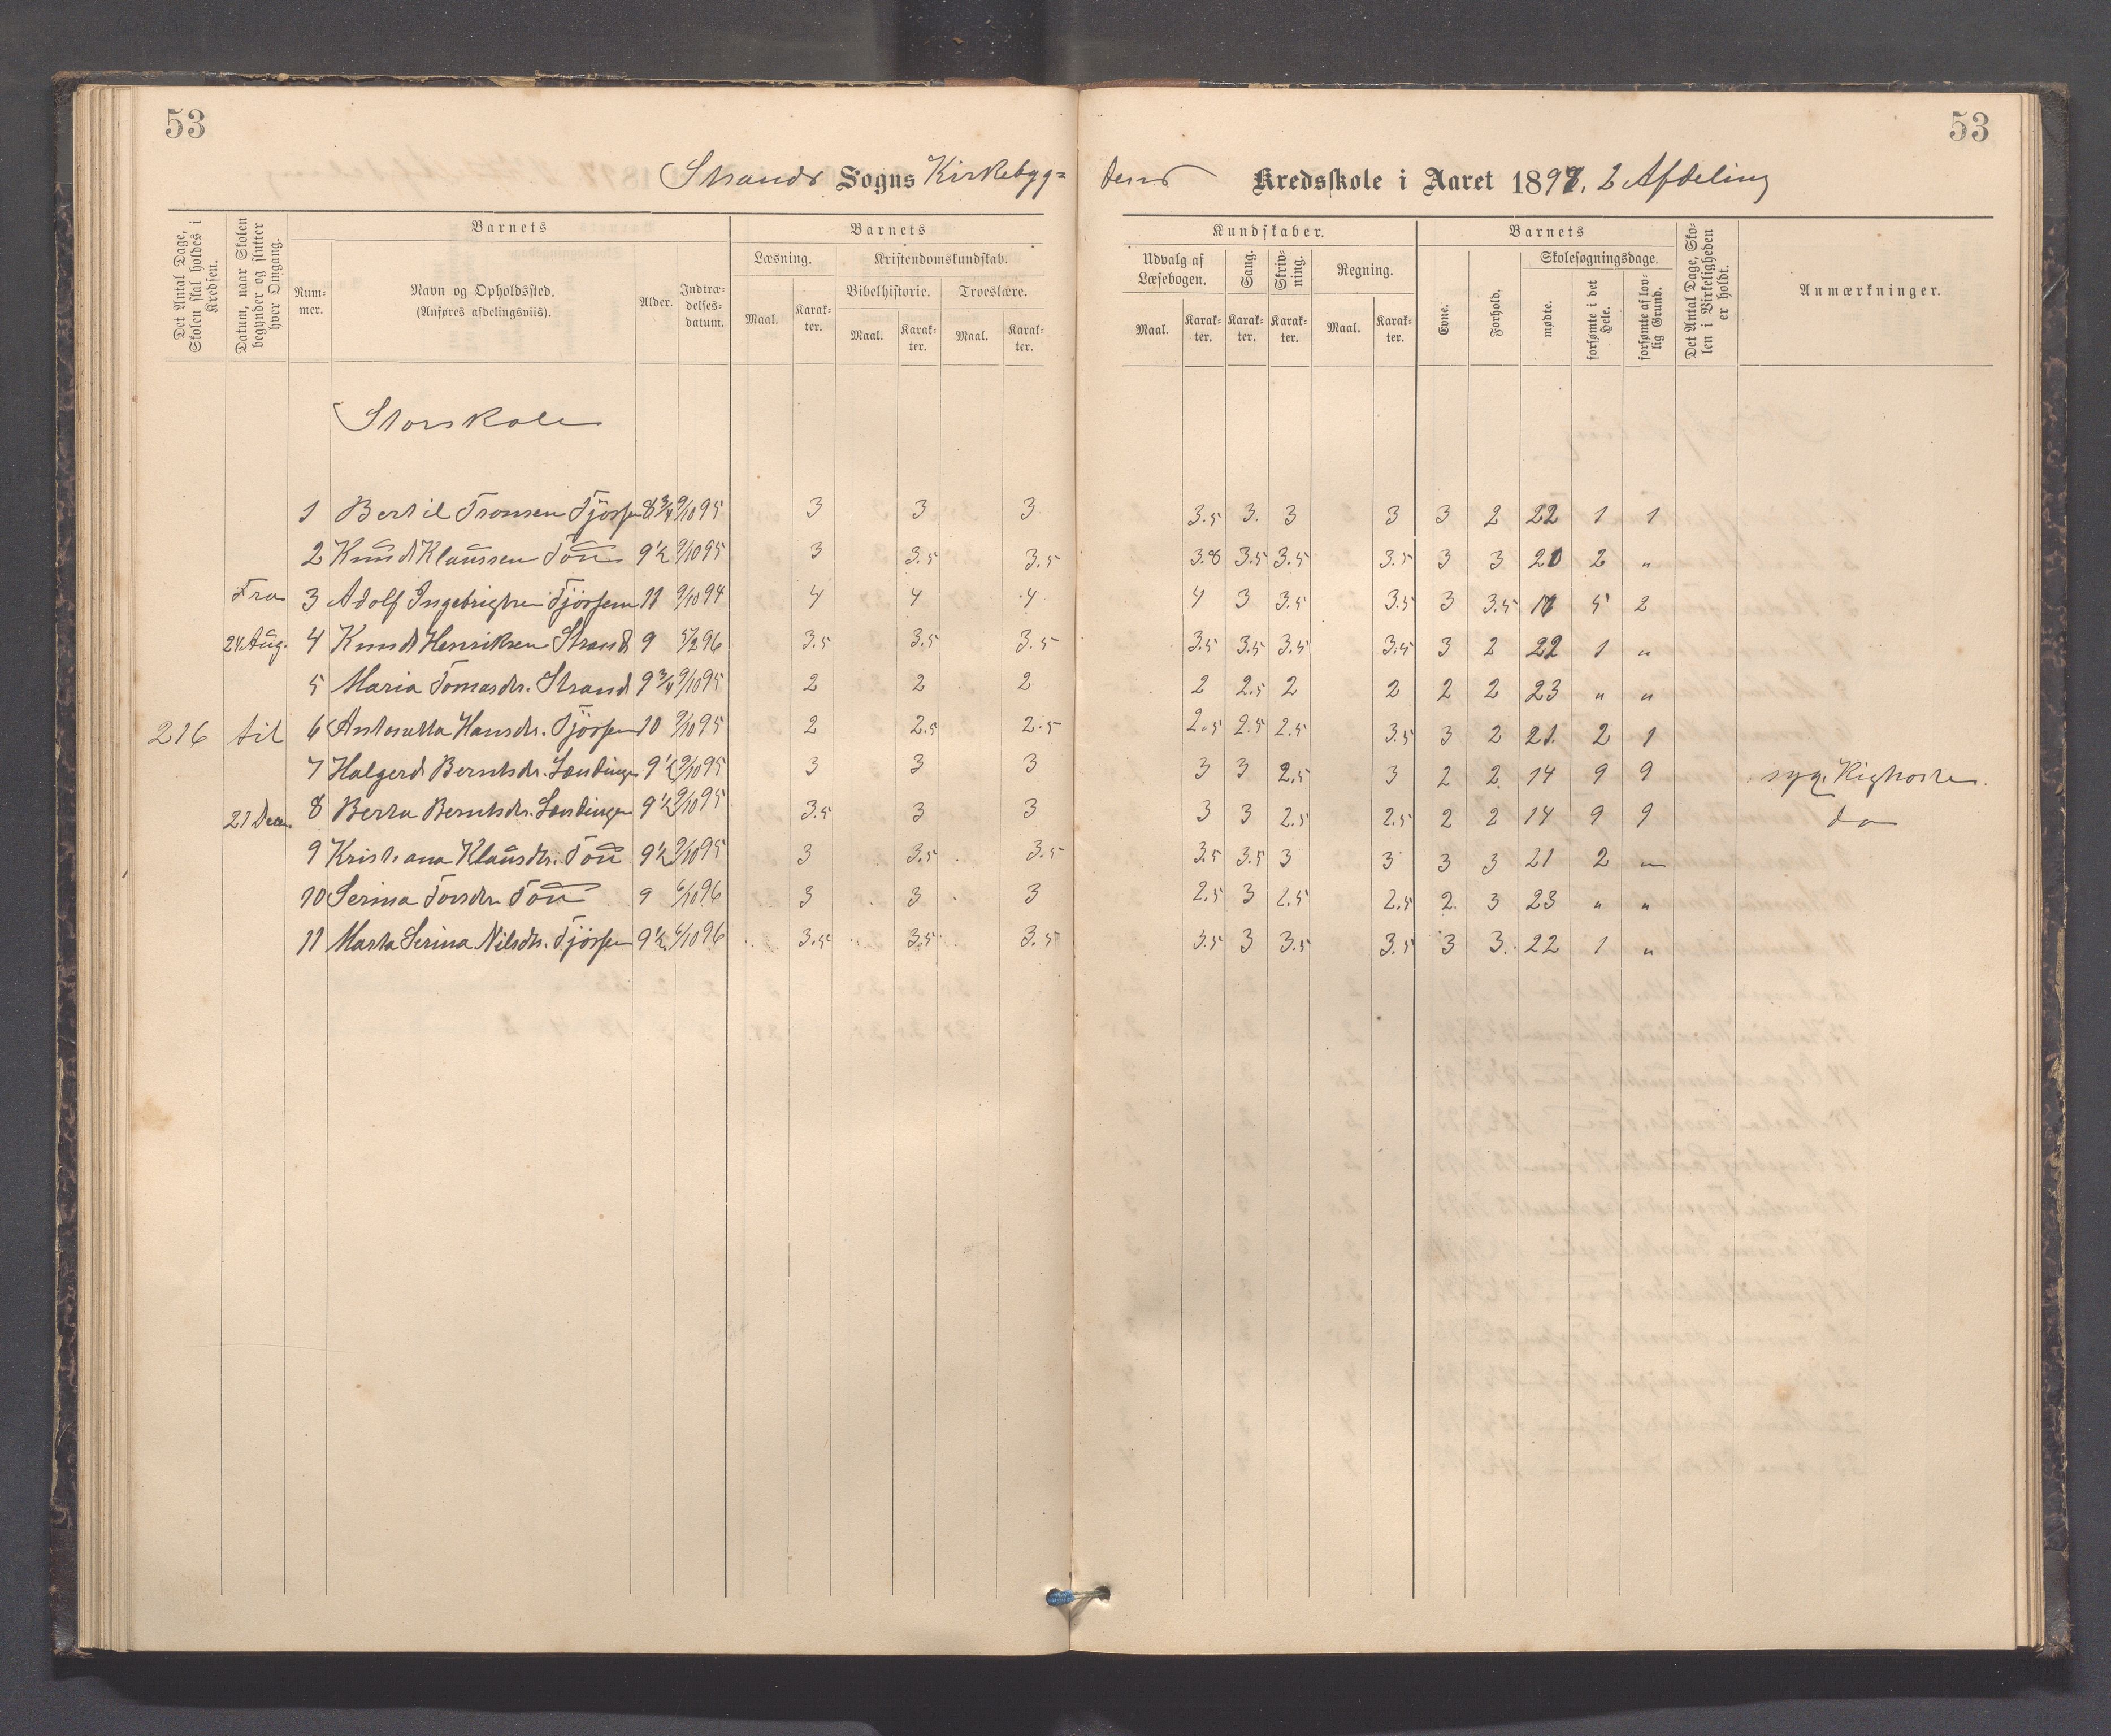 53
53
Strands Sogns Kirkebyg=
dens Kredsskole i Aaret 1897. 2 Afdeling
Det Antal Dage, Skolen skal holdes i Kredsen.
Datum, naar Skolen begynder og slutter hver Omgang.
Barnets
Num-mer.
Navn og Opholdssted.
(Anføres afdelingsviis).
Alder.
Indtræ-delses-datum.
Barnets
Læsning.
Maal.
Karak-ter.
Kristendomskundskab.
Bibelhistorie.
Maal.
Karak-ter.
Troeslære.
Maal.
Karak-ter.
Kundskaber.
Udvalg af Læsebogen.
Maal.
Karak-ter.
Sang.
Karak-ter.
Skriv-ning.
Karak-ter.
Regning.
Maal.
Karak-ter.
Barnets
Evne.
Forhold.
Skolesøgningsdage.
mødte.
forsømte i det Hele.
forsømte af lov-lig Grund.
Det Antal Dage, Sko-len i Virkeligheden er holdt.
Anmærkninger.
Storskole
1 Bertil Tronsen Tjössem 8 3/4 9/10 95 3 3 3 3.5 3. 3 3 3 2 22 1 1
2 Knud Klaussen Tou 9 1/2 9/10 95 3 3.5 3.5 3.8 3.5 3.5 3.5 3 3 20 2 "
Fra 3 Adolf Ingebrigtsen Tjössem 11 9/10 94 4 4 4 4 3 3.5 3.5 3 3.5 5 2
24 Aug. 4 Knud Henriksen Strand 9 5/2 96 3.5 3.5 3.5 3.5 3.5 3.5 3.5 3 2 22 1 "
5 Maria Tomasdtr. Strand 9 3/4 9/10 95 2 2 2 2 2.5 2 2 2 2 23 " "
216 til 6 Hansdtr. Tjössem 10 9/10 95 2 2.5 2.5 2.5 2.5 2.5 3.5 3 2 21. 2 1
7 Halgerd Berntsdtr. 9 1/2 9/10 95 3 3 3 3 3 2.5 3 2 2. 14 9 9 syg. Kighoste.
21 Decm. 8 Berta Berntsdtr. 9 1/2 9/10 95 3.5 3 3 3 3 2.5 2.5 2 2 14 9 9 do
9 Kristiana Klausdtr. Tou 9 1/2 9/10 95 3 3.5 3.5 3.5 3.5 3 3 3 3 21 2 "
10 Serina Torsdtr. Tou 9 6/10 96 3 3 3 2.5 3 2.5 2.5 2. 3 23 " "
11 Marta Serina Nilsdtr. Tjössem 9 1/2 6/10 96 3.5 3.5 3.5 3.5 3 3.5 3.5 3 3. 22 1 "